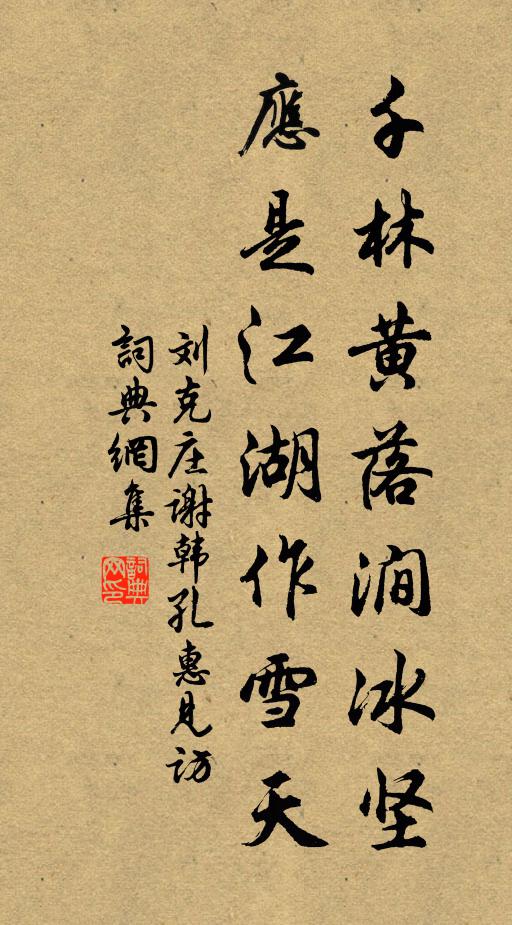 千林黄落涧冰坚
應是江湖作雪天
刘克庄谢韩孔惠見访
詞典網集
詞典网印